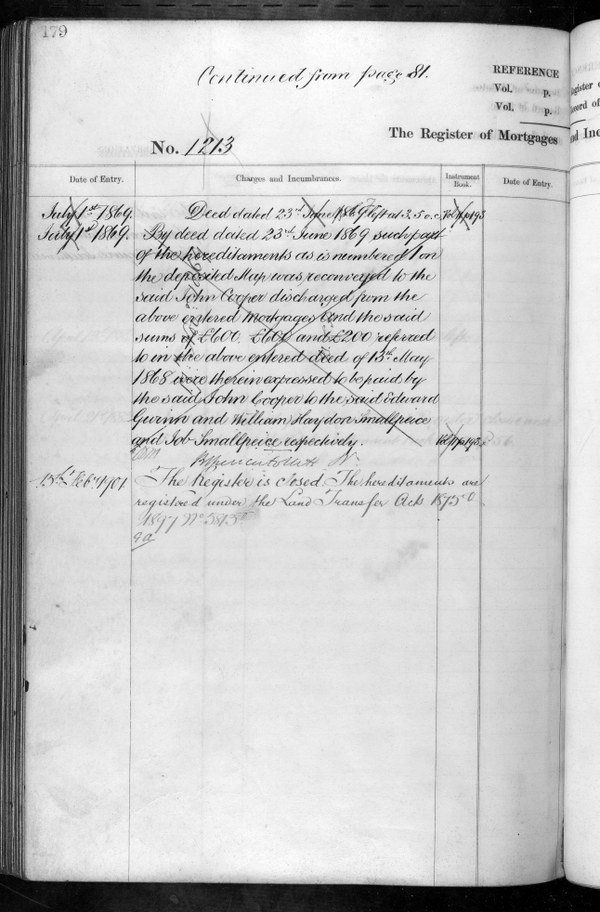 179
Continued from page 81.
REFERENCE
Vol. p.
Vol. p.
The Register of Mortgages
No. 1213
Date of Entry.
Charges and Incumbrances.
Instrument Book.
Date of Entry.
July 1st 1869. Deed dated 23rd June 1869 left at 3.5 o.c.
July 1st 1869. By deed dated 23rd June 1869 such part
of the hereditaments as is numbered 1 on
the deposited Map was reconveyed to the
said John Cooper discharged from the
above entered Mortgages and the said
sums of £600, £600 and £200 referred
to in the above entered deed of 13th May
1868 were therein expressed to be paid by
the said John Cooper to the said Edward
Gwinn and William Haydon Smallpeice
and Job Smallpeice respectively.
13th Feby 1901. The Register is closed. The hereditaments are
registered under the Land Transfer Acts 1875 &
1897 No